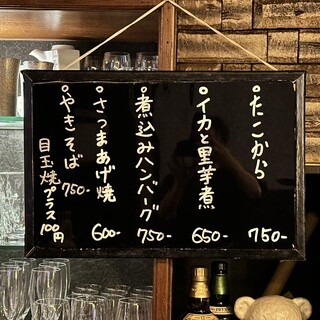 ・たこから 750-
・イカと里芋煮 650-
・煮込みハンバーグ 750-
・さつまあげ焼 600-
・やきそば 750-
目玉焼プラス100円